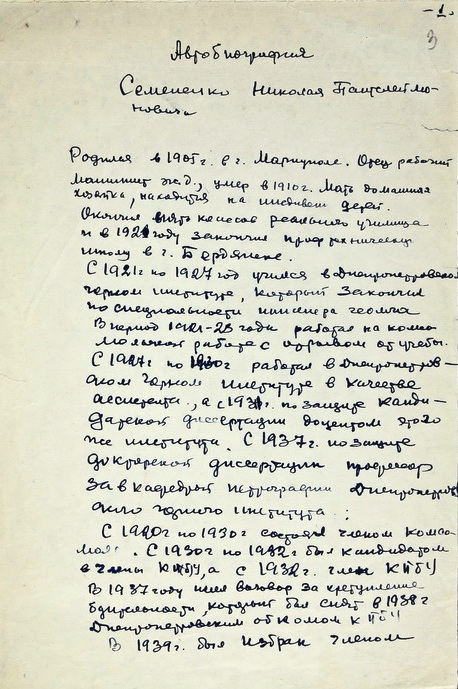 - 1.
3
Автобиография
Семененко Николая Пантелеймо-
новича
Родился в 1905 г. в г. Мариуполе. Отец рабочий
машинист жд., умер в 1910 г. Мать домашняя
хозяйка, находится на иждивении детей.
Окончил пять классов реального училища
и в 1921 году закончил проф техническую
школу в г. Бердянске.
С 1921 г по 1927 год учился в Днепропетровском
горном институте, который закончил
по специальности инженера геолога
В период 1921-23 года работал на комсо
мольской работе с отрывом от учебы.
С 1927 г по 1930 г работал в Днепропетров-
ском Горном институте в качестве
ассистента, а с 193 г. по защите канди-
датской диссертации доцентом этого
же института. С 1937 г. по защите
докторской диссертации профессор
зав кафедрой петрографии Днепропетров
ского горного института.
С 1920 г по 1930 г состоял членом комсо-
мола. С 1930 г по 1932 г был кандидатом
в члены КПбУ, а с 1932 г. член КПбУ
В 1937 году имел выговор за притупление
бдительности, который был снят в 1938 г
Днепропетровским обкомом КПбУ
В 1939 г. был избран членом